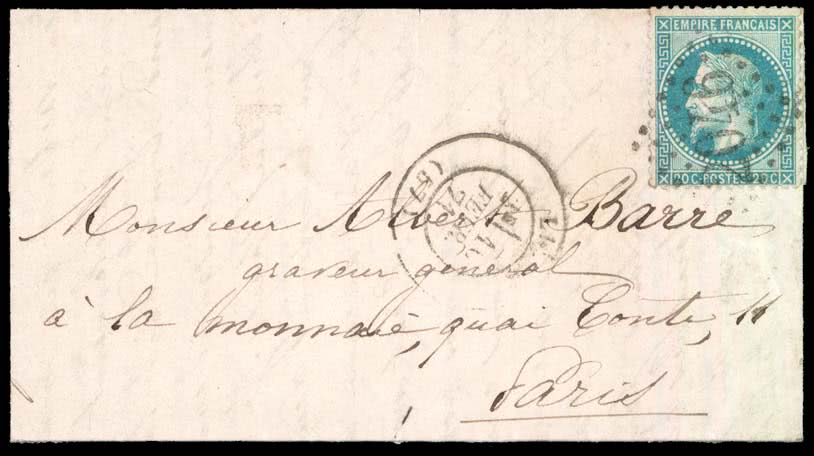 EMPIRE FRANÇAIS
20 C-POSTES-20 C
Monsieur Albert Barre
graveur général
à la monnaie, quai Conti, 11
Paris
(67)
FEVR.
71